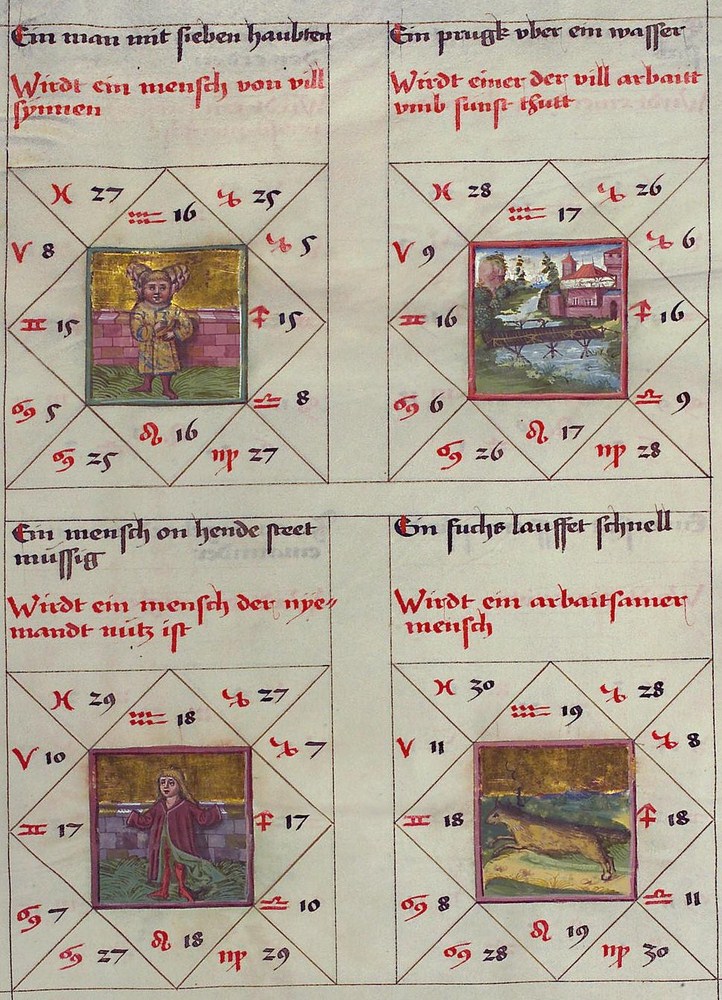 Ein man mit sieben haubten
Wirdt ein mensch von vill
synnen
♓ 27
♒ 16
♑ 25
♈ 8
♑ 5
♊ 15
♐ 15
♋ 5
♎ 8
♌ 16
♋ 25
♍ 27
Ein prugk vber ein wasser
Wirdt einer der vill arbaitt
vmb sunst thutt
♓ 28
♒ 17
♑ 26
♈ 9
♑ 6
♊ 16
♐ 16
♋ 6
♎ 9
♌ 17
♋ 26
♍ 28
Ein mensch on hende steet
mussig
Wirdt ein mensch der nye=
mandt nutz ist
♓ 29
♒ 18
♑ 27
♈ 10
♑ 7
♊ 17
♐ 17
♋ 7
♎ 10
♌ 18
♋ 27
♍ 29
Ein fuchs lauffet schnell
Wirdt ein arbaitsamer
mensch
♓ 30
♒ 19
♑ 28
♈ 11
♑ 8
♊ 18
♐ 18
♋ 8
♎ 11
♌ 19
♋ 28
♍ 30